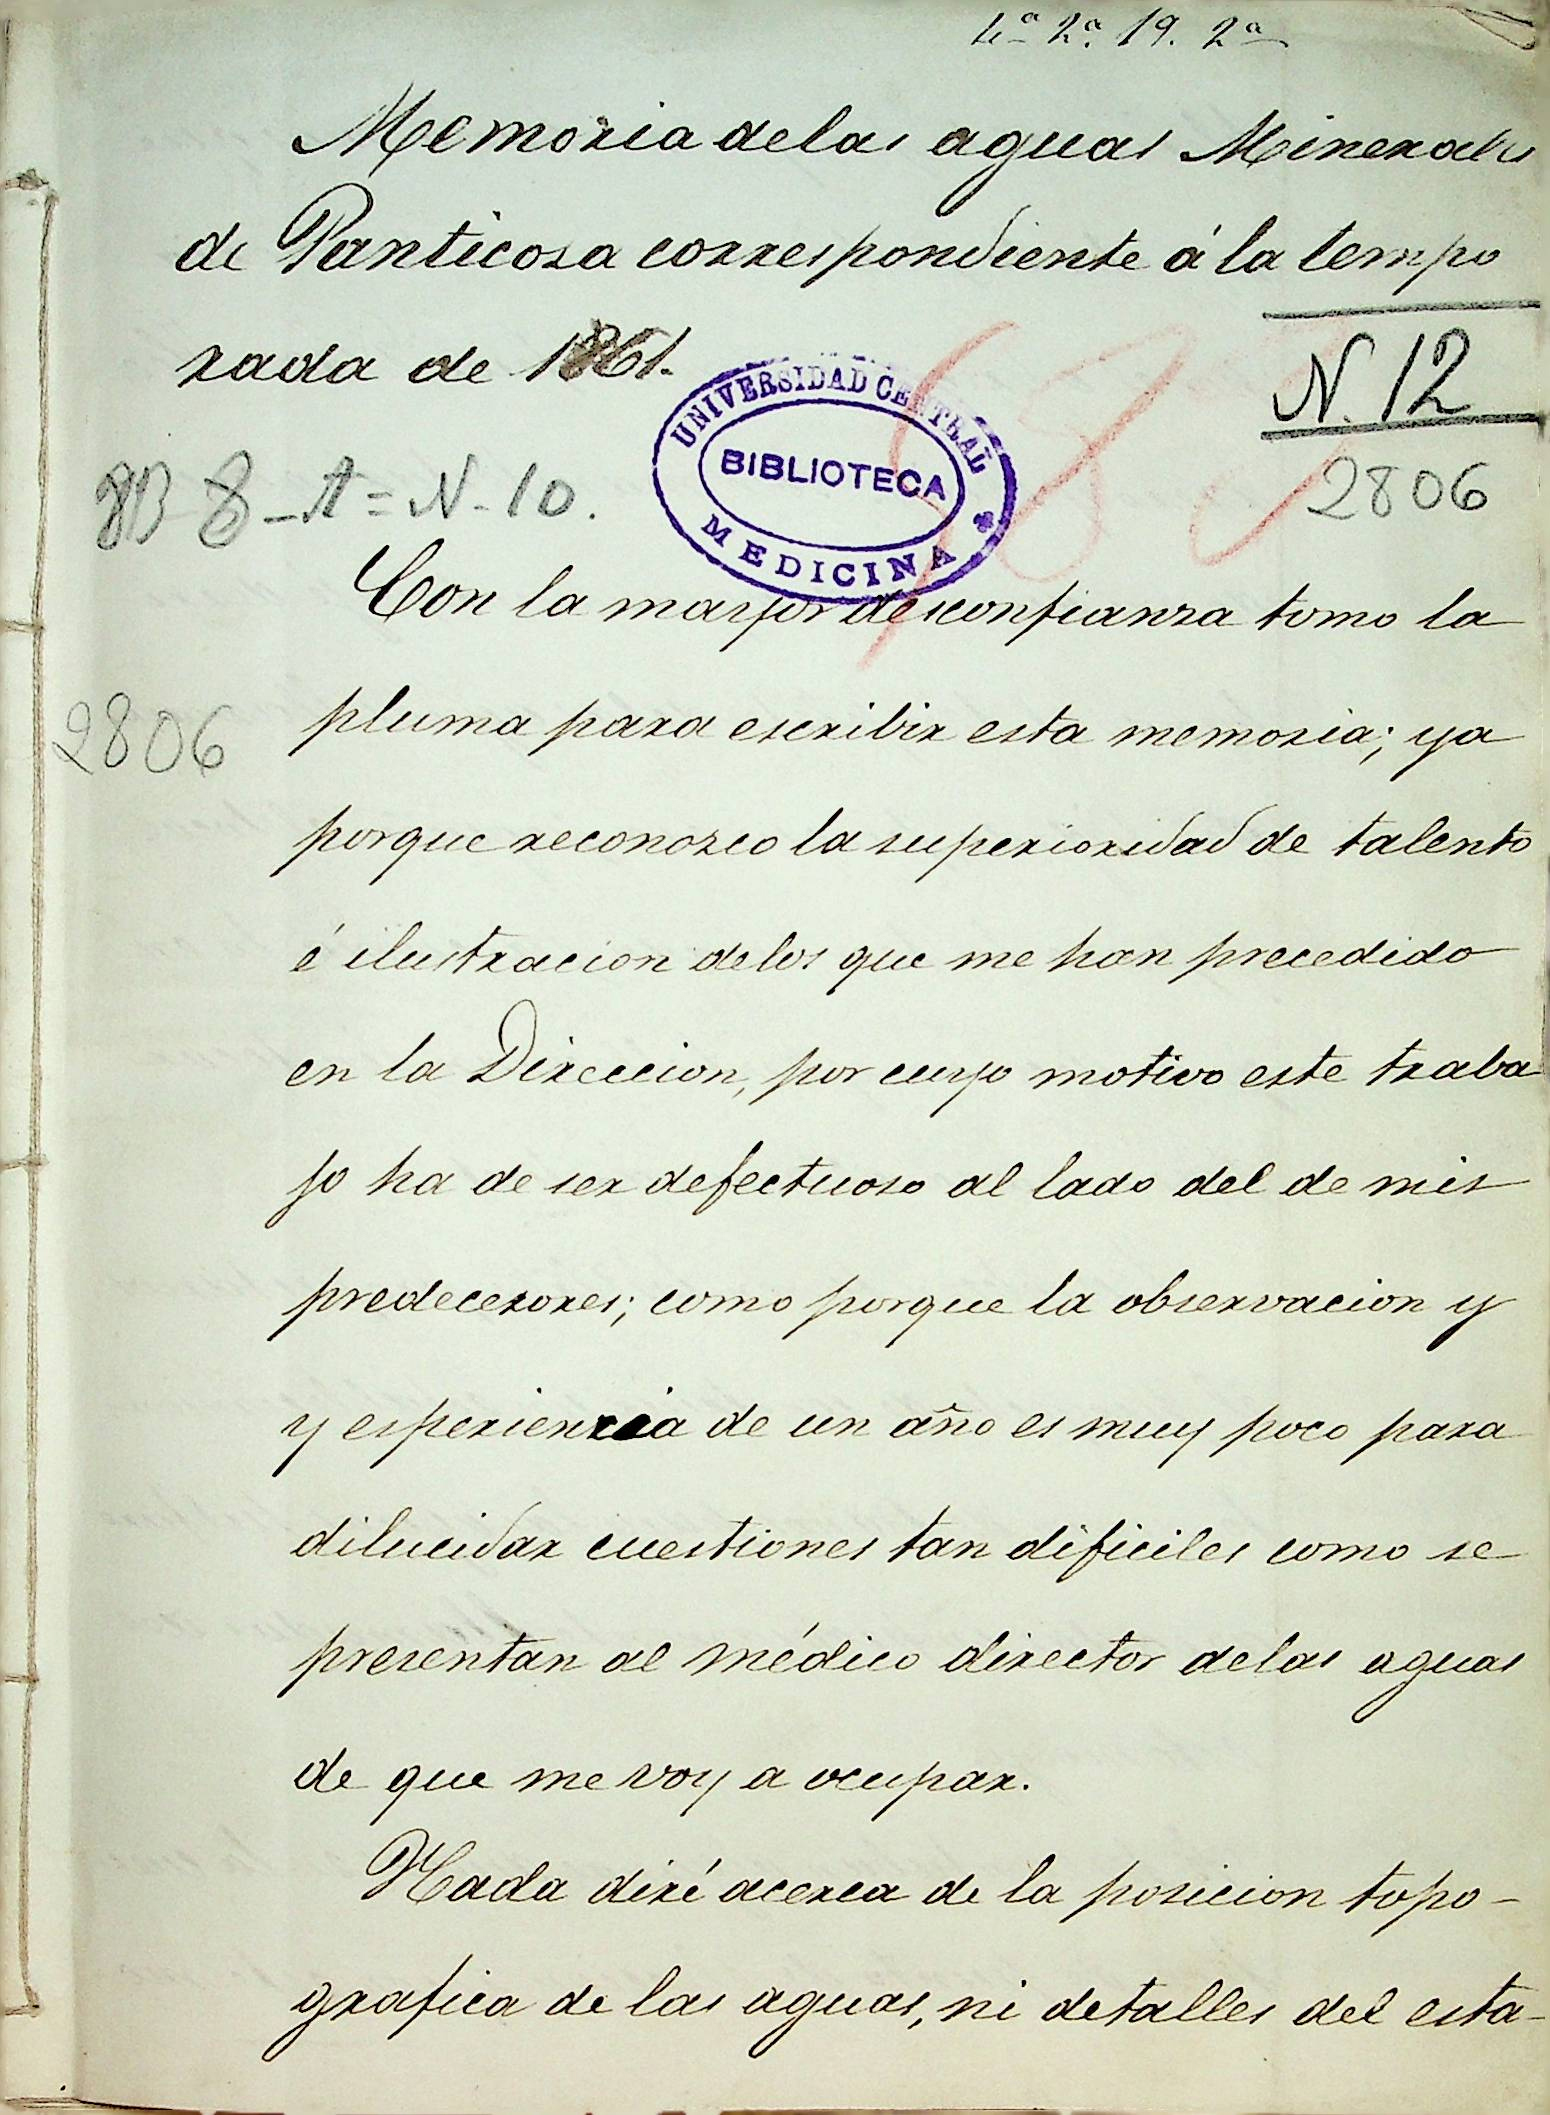 4ª 2ª 19. 2ª
Memoria de las aguas Minerales
de Panticosa correspondiente á la tempo
rada de 1861.
N. 12
UNIVERSIDAD CENTRAL
BIBLIOTECA
MEDICINA
8-A=N-10.
2806
Con la mayor desconfianza tomo la
2806
pluma para escribir esta memoria; ya
porque reconozco la superioridad de talento
é ilustracion de los que me han precedido
en la Direccion, por cuyo motivo este traba
jo ha de ser defectuoso al lado del de mis
predecesores; como porque la observacion y
y esperiencia de un año es muy poco para
dilucidar cuestiones tan dificiles como se
presentan al médico director de las aguas
de que me voy a ocupar.
Nada diré acerca de la posicion topo-
grafica de las aguas, ni detalles del esta-